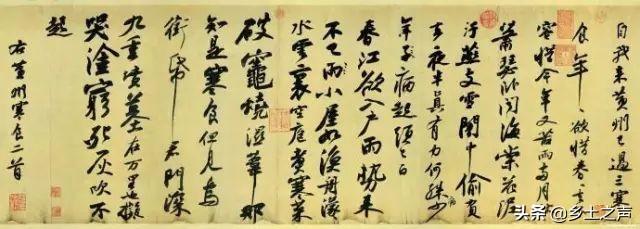 自我來黃州已過三寒
食年々欲惜春々去不
容惜今年又苦雨兩月秋
蕭瑟臥聞海棠花泥
汙燕支雪闇中偷負
去夜半真有力何殊少
年子病起頭已白
春江欲入戶雨勢來
不已雨小屋如漁舟濛々
水雲裏空庖煮寒菜
破竈燒濕葦那
知是寒食但見烏
銜帋君門深
九重墳墓在万里也擬
哭塗窮死灰吹不
起
右黃州寒食二首
头条 @乡土之声